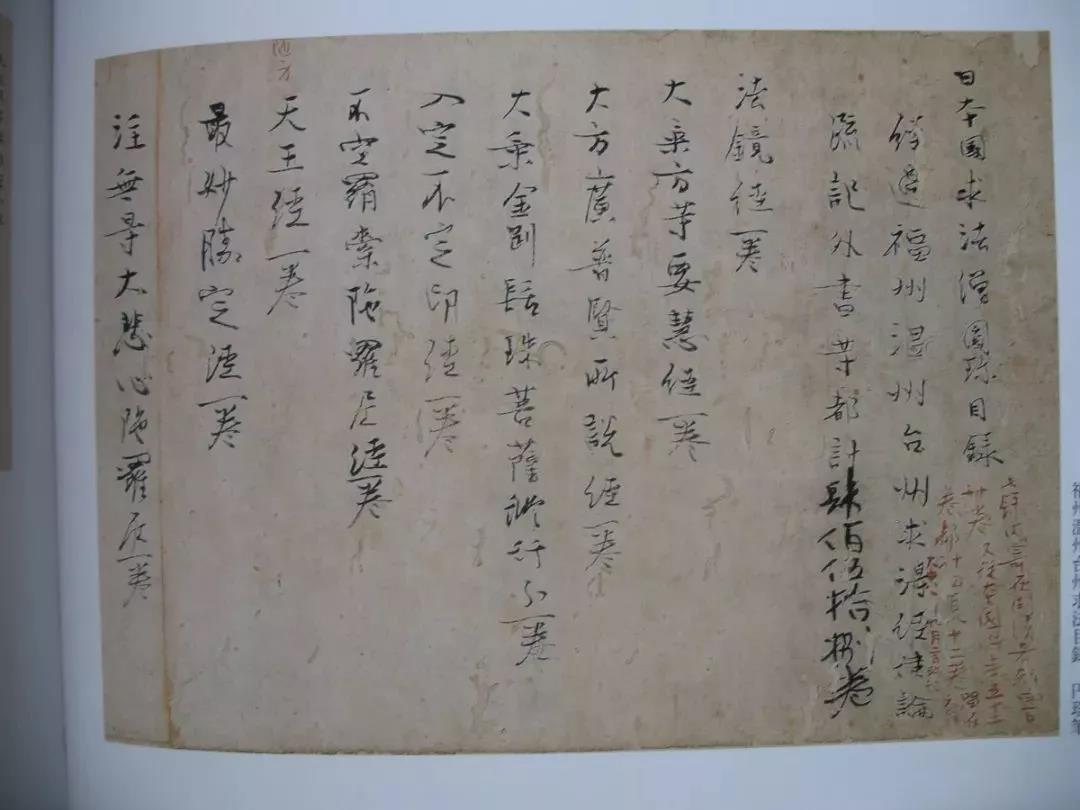 日本國求法僧圓珎目錄
經過福州溫州台州求得經律論
疏記外書等都計肆佰伍拾捌卷
法鏡經一卷
大乘方等要慧經一卷
大方廣普賢所說經一卷
大乘金剛髻珠菩薩修行分一卷
入定不定印經一卷
不空羂索陁羅尼經一卷
天王經一卷
最妙勝定經一卷
註無量大慈心陁羅尼一卷
福州溫州台州求法目錄 円珍筆